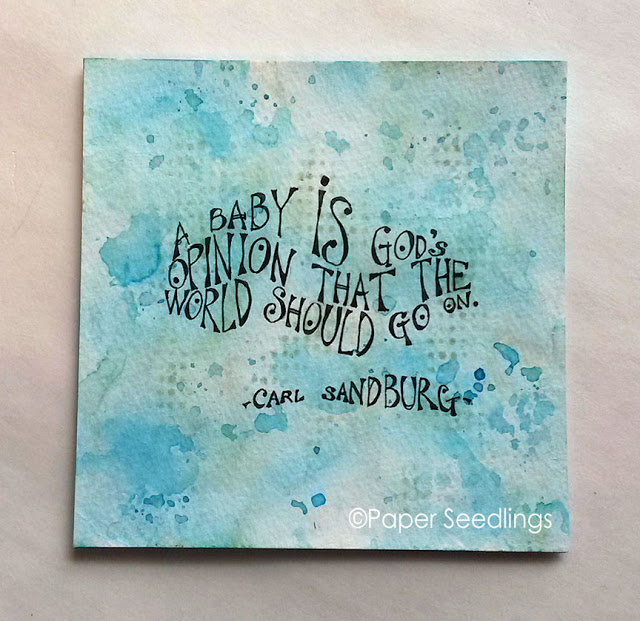 A BABY IS GOD'S
OPINION THAT THE
WORLD SHOULD GO ON.
-CARL SANDBURG-
©Paper Seedlings